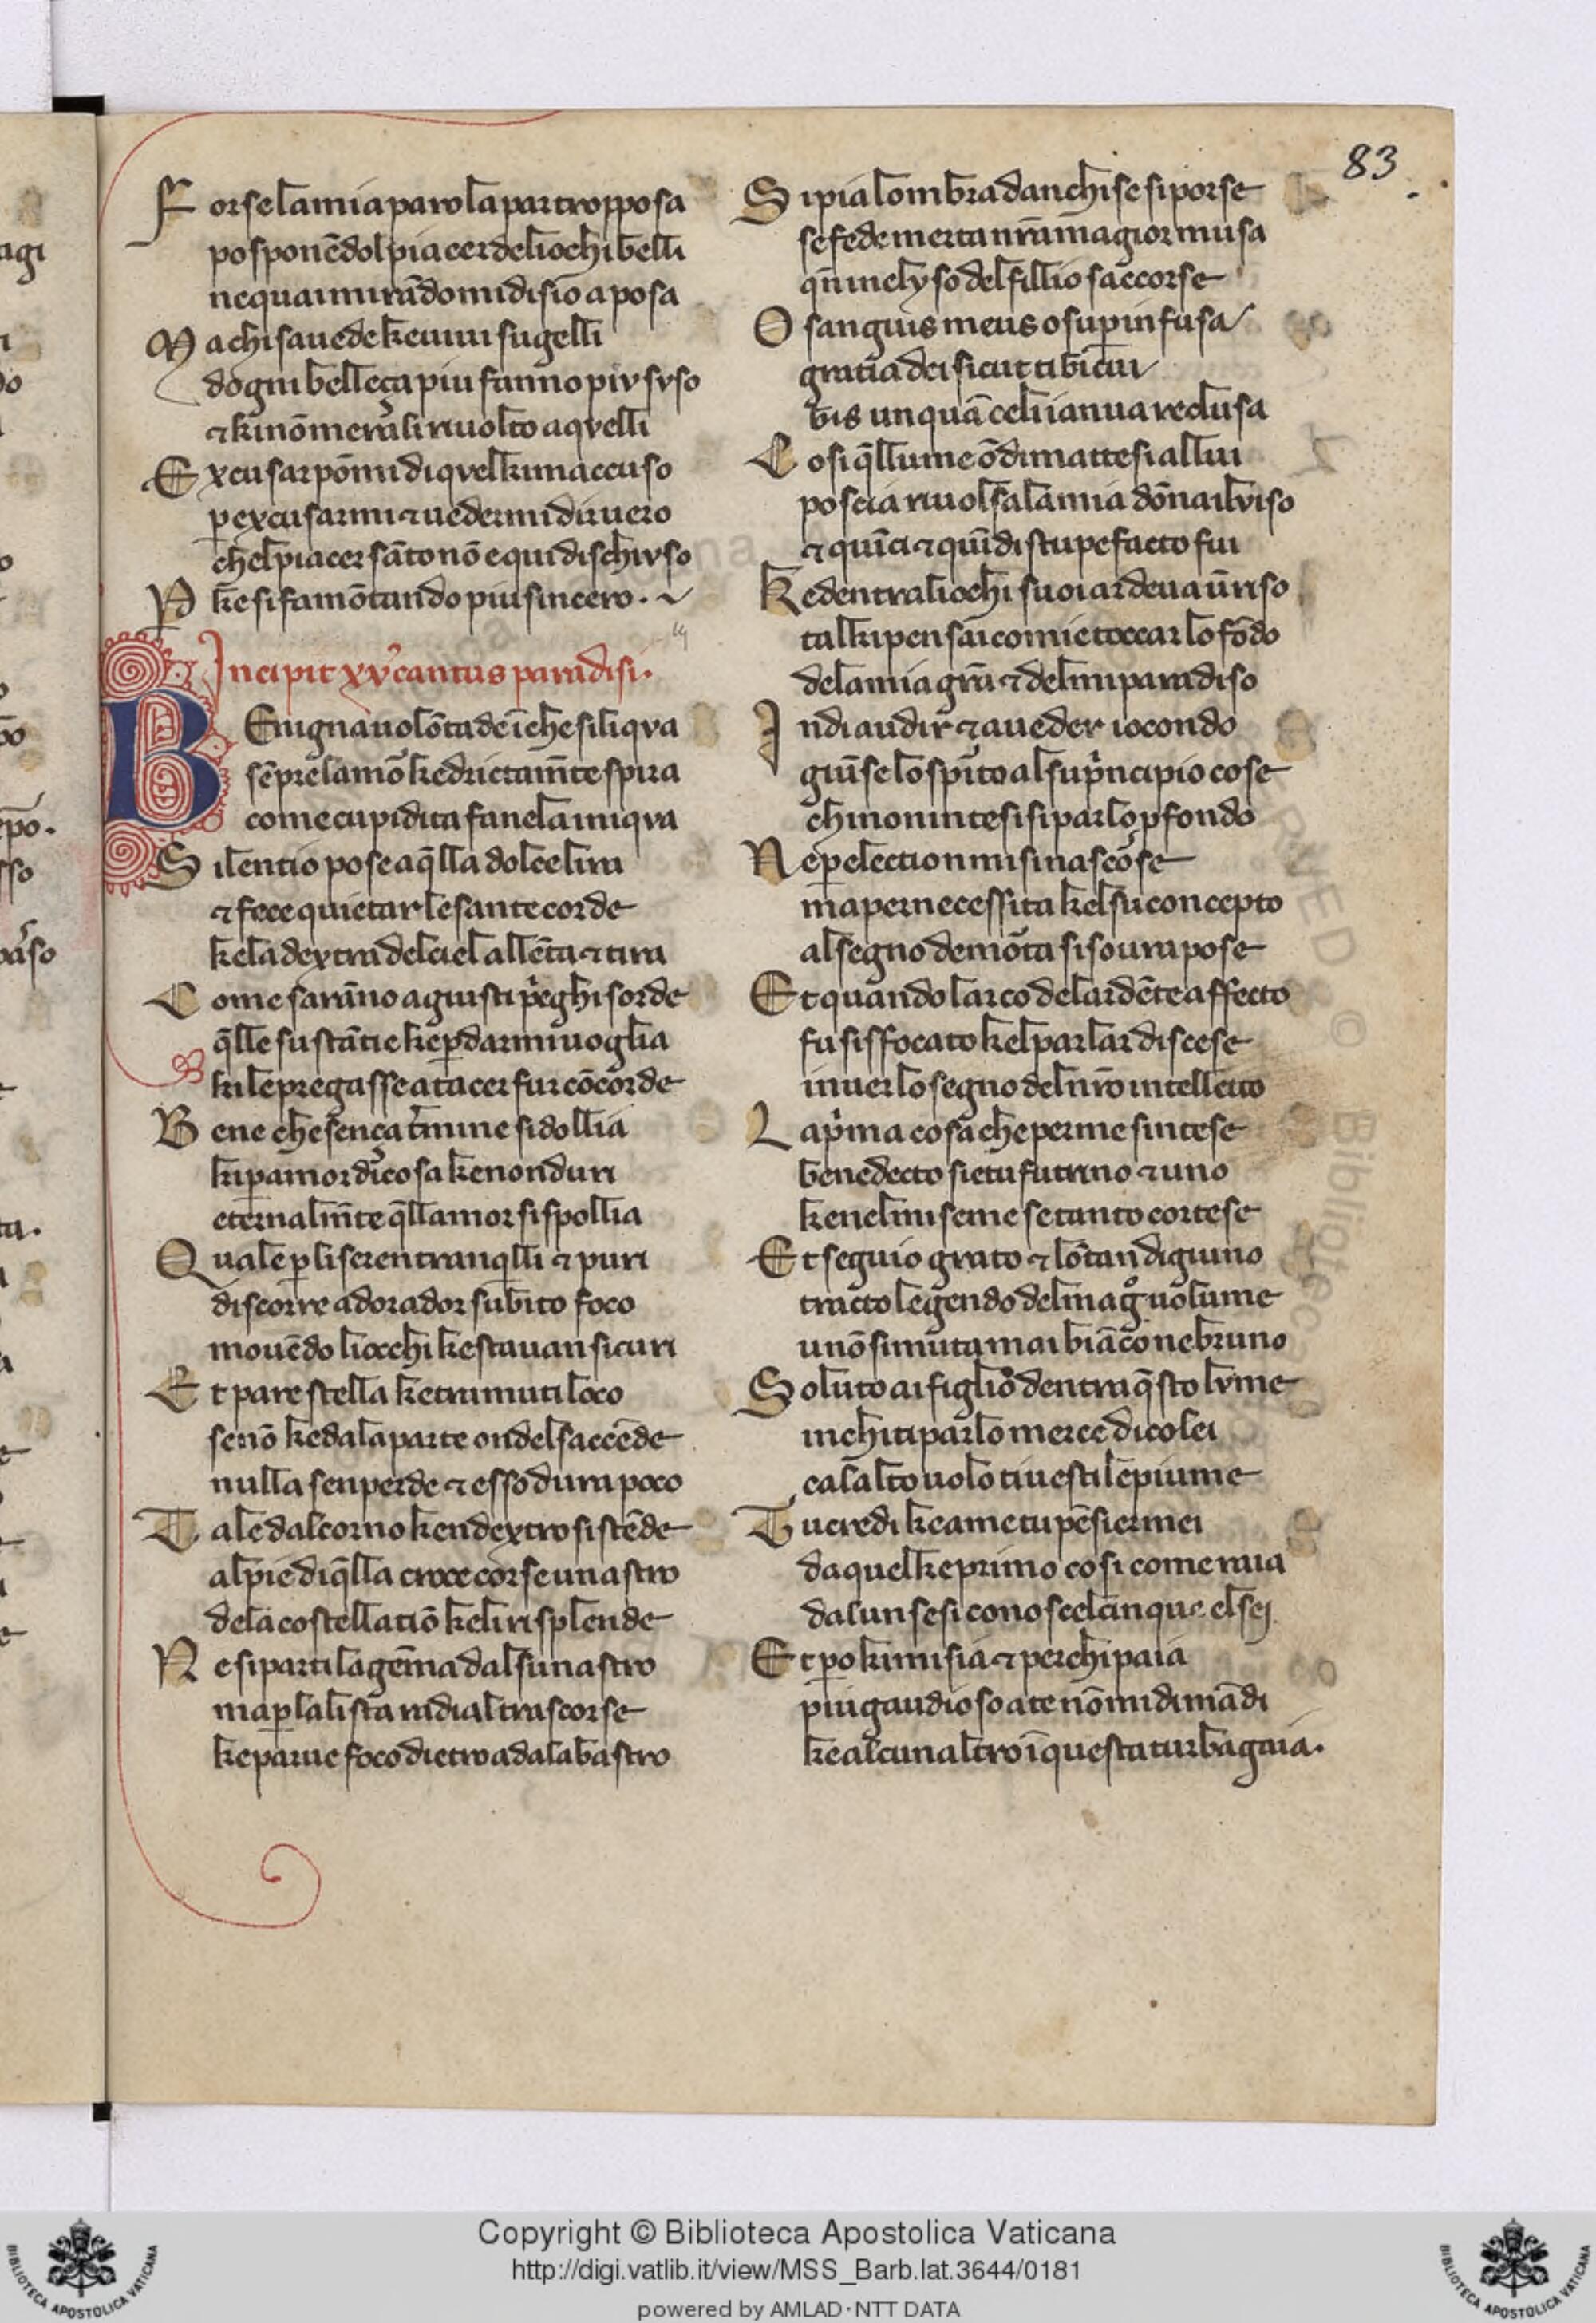 83
Forse la mia parola par troppo osa
posponēdol piacer deli ochi belli
nequai mirādo mi disio a posa
Ma chi savede ke iuiui sugelli
dogni belleça piu fanno piv svso
⁊ kinō merali riuolto aqvelli
Excusar pōmi di qvel kimaccuso
p excusarmi ⁊ uedermi dir uero
chel piacer sāto nō e qui dischivso
P̄ ke si fa mōtando piu sincero.
Incipit xv cantus paradisi.
BEnigna uolōtade ī che si liqva
sēpre lamor̄ ke drictam̄te spira
come cupidita fa nela iniqva
Silentio pose a q̄lla dolce lira
⁊ fece quietar le sante corde
ke la dextra del ciel allēta ⁊ tira
Come sarāno a giusti p̄eghi sorde
q̄lle sustātie ke p darmi uoglia
kile pregasse a tacer fur cōcorde
Bene che sença t̄mine si dollia
ki p amor di cosa ke non duri
eternalm̄te q̄llamor si spollia
Quale p li seren tranq̄lli ⁊ puri
discorre ador ador subito foco
mouēdo liocchi ke stauan sicuri
Et pare stella ke tramuti loco
se nō ke dala parte ondel saccēde
nulla sen perde ⁊ esso dura poco
Tale dal corno ken dextro si stēde
al pie di q̄lla croce corse un astro
dela costellatiō ke li risplende
Ne si parti la gēma dal su nastro
ma p la lista radial trascorse
ke parue foco dietro ad alabastro
Si pia lombra danchise si porse
se fede merta nr̄a magior musa
qn̄ in elyso del fillio saccorse
O sanguis meus o sup infusa
gratia dei sicut tibi cui
bis unquā celi ianua reclusa
Cosi q̄l lume ōdi mattesi allui
poscia riuolsa la mia dōna il viso
⁊ quīci ⁊ quīdi stupefacto fui
Ke dentra li ochi suoi ardeua ū riso
tal ki pensai co mie toccar lo fōdo
dela mia gr̄a ⁊ del mi paradiso
Indi audir ⁊ a ueder iocondo
giūse lo spīto al su p̄ncipio cose
chi non intesi si parlo pfondo
Ne p election mi si nascose
ma per necessita kel su concepto
al segno de mōta si soura pose
Et quando larco de lardēte affecto
fu si sfocato kel parlar discese
inuer lo segno del nr̄o intellecto
La p̄ma cosa che per me sintese
benedecto sie tu fu trino ⁊ uno
ke nel mi seme se tanto cortese
Et seguio grato ⁊ lōtan digiuno
tracto legendo del mag̊ uolume
u nō si muta mai biāco ne bruno
Soluto ai figlio dentra q̄sto lvme
in chi ti parlo merce di colei
calalto uolo ti uesti le piume
Tu credi ke a me tu pēsier mei
da quel ke primo cosi come raia
dalun se si conosce el cinque el sej
Et po kimi sia ⁊ perchi paia
piu gaudioso a te nō mi dimādi
ke alcun altro ī questa turba gaia.
Copyright © Biblioteca Apostolica Vaticana
http://digi.vatlib.it/view/MSS_Barb.lat.3644/0181
powered by AMLAD·NTT DATA
BIBLIOTECA APOSTOLICA VATICANA
BIBLIOTECA APOSTOLICA VATICANA